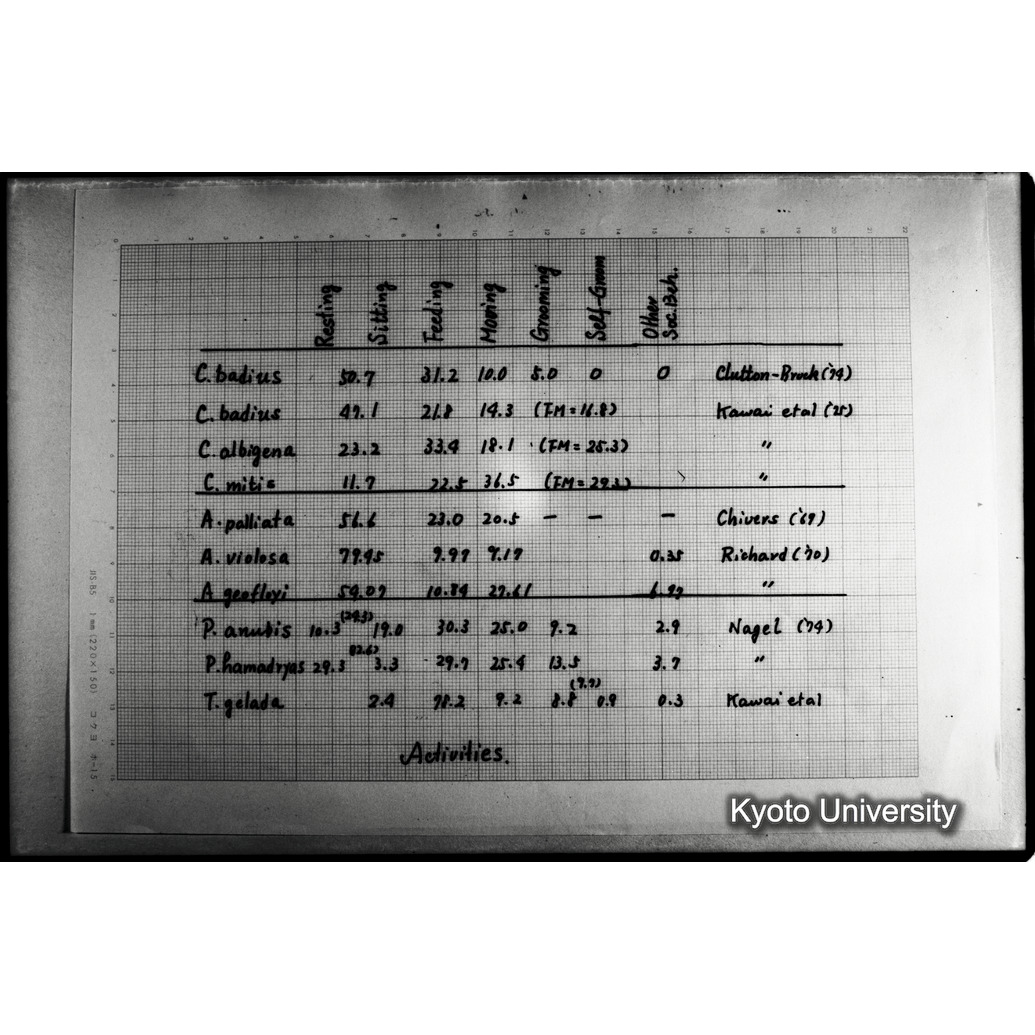 Resting Sitting Feeding Moving Grooming Self-Groom Other Soc. Beh.
C. badius 50.7 31.2 10.0 5.0 0 0 Clutton-Brock ('74)
C. badius 47.1 21.8 14.3 (IM = 16.8) Kawai et al ('75)
C. albigena 23.2 33.4 18.1 (IM = 25.3) "
C. mitis 11.7 22.5 36.5 (IM = 29.3) "
A. palliata 56.6 23.0 20.5 — — — Chivers ('69)
A. violosa 0.35 Richard ('70)
A geofloyi "
P. anubis 10.3 19.0 30.3 25.0 9.2 2.9 Nagel ('74)
P. hamadryas 29.3 3.3 29.7 25.4 13.5 3.7 "
T. gelada 2.4 9.2 8.8 0.9 0.3 Kawai et al
Activities.
JIS B5 1mm (220×150) コクヨ ホ-15
Kyoto University